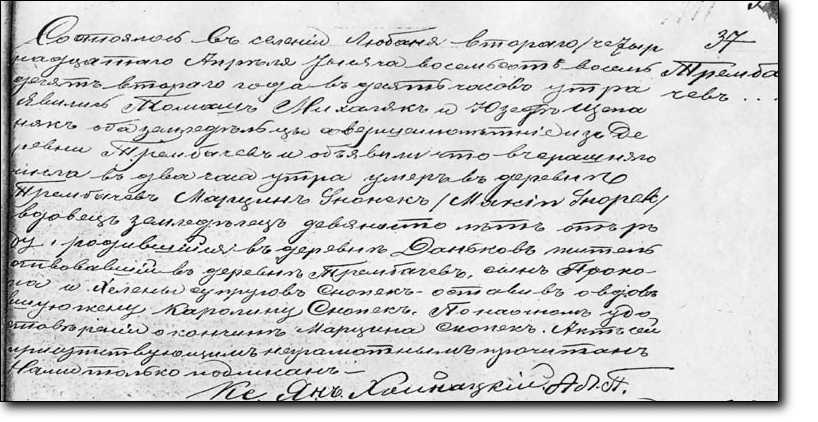 Состоялось въ селеніи Любаня второго/четыр
надцатаго Апрѣля тысяча восемьсотъ восемь
десятъ второго года въ десять часовъ утра
Явились Томашъ Михалякъ и Юзефъ Щепа
някъ оба земледѣльцы совершеннолѣтніе изъ Де
ревни Трембачевъ и объявили что вчерашняго
числа въ два часа утра умеръ въ деревнѣ
Трембачевъ Марцинъ Снопекъ /Marcin Snopek/
вдовецъ земледѣлецъ девяносто лѣтъ отъ ро
ду, родившійся въ деревнѣ Даньковъ житель
ствовавшій въ деревнѣ Трембачевъ, сынъ Проко
па и Хелены супруговъ Снопекъ - оставивъ овдовѣ
вшую жену Каролину Снопекъ. По наочномъ удо
стовѣреніи о кончинѣ Марцина Снопекъ. Актъ сей
присутствующимъ неграмотнымъ прочитанъ
Нами только подписанъ —
Кс. Янъ Хойнацкій. А.П.П.
37
Тремба
чевъ ...